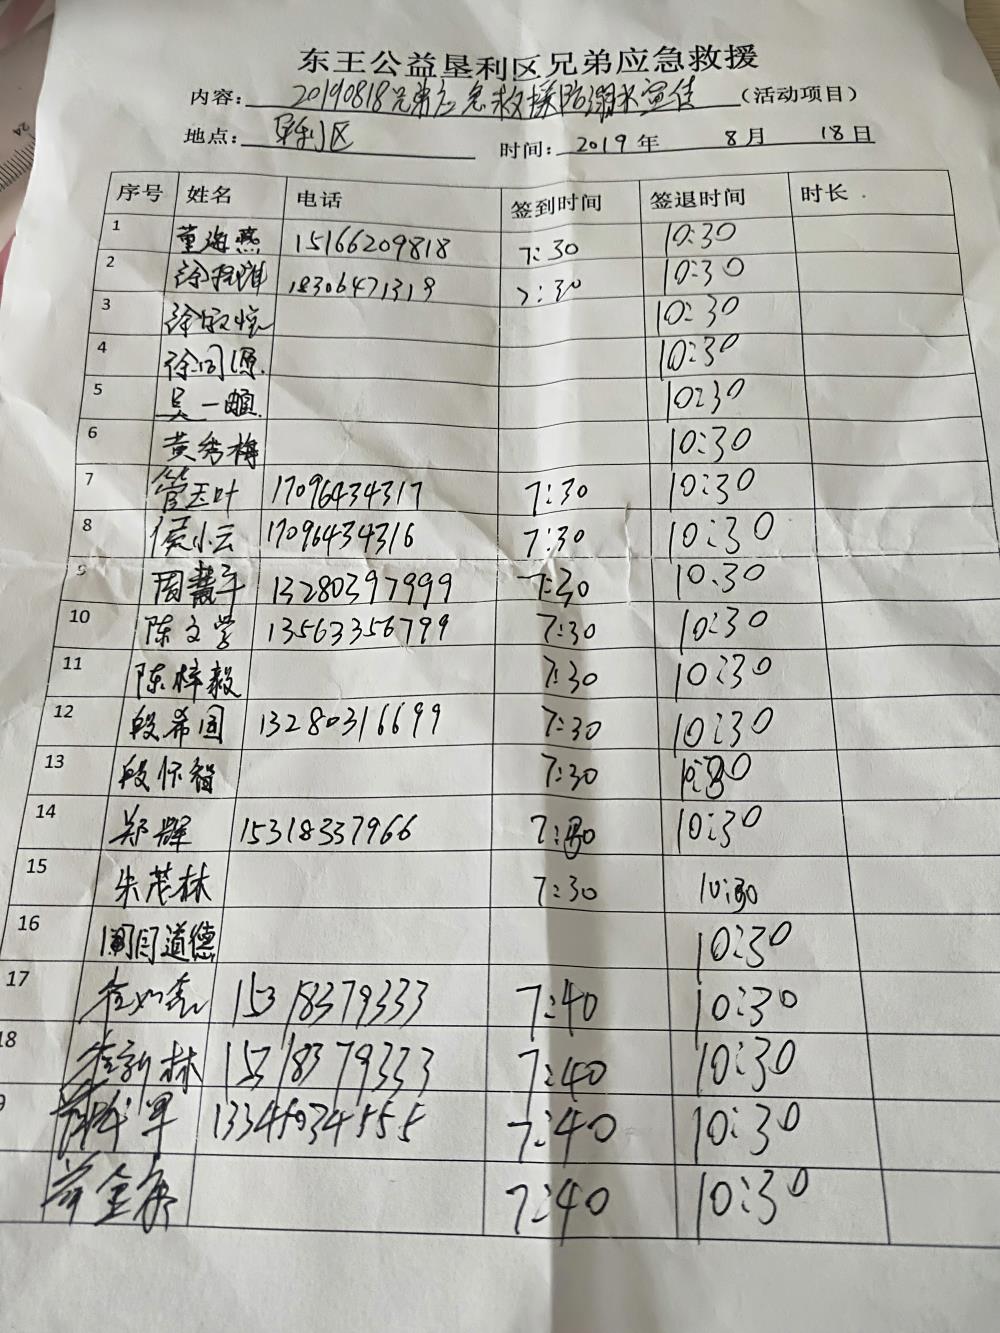 东王公益垦利区兄弟应急救援
内容: 20190818兄弟应急救援防溺水宣传 (活动项目)
地点: 垦利区 时间: 2019 年 8 月 18 日
序号 姓名 电话 签到时间 签退时间 时长
1 董海燕 15166209818 7:30 10:30
2 18306471319 7:30 10:30
3 10:30
4 徐同源 10:30
5 吴一頔 10:30
6 黄秀梅 10:30
7 管玉叶 17096434317 7:30 10:30
8 侯小云 17096434316 7:30 10:30
9 周慧平 13280397999 7:30 10:30
10 陈文学 13563356799 7:30 10:30
11 陈梓毅 7:30 10:30
12 段希国 13280316699 7:30 10:30
13 段怀智 7:30 10:30
14 郑辉 15318337966 7:30 10:30
15 朱茂林 7:30 10:30
16 闫道德 10:30
17 15318379333 7:40 10:30
18 崔新林 15318379333 7:40 10:30
9 13345034555 7:40 10:30
7:40 10:30
24